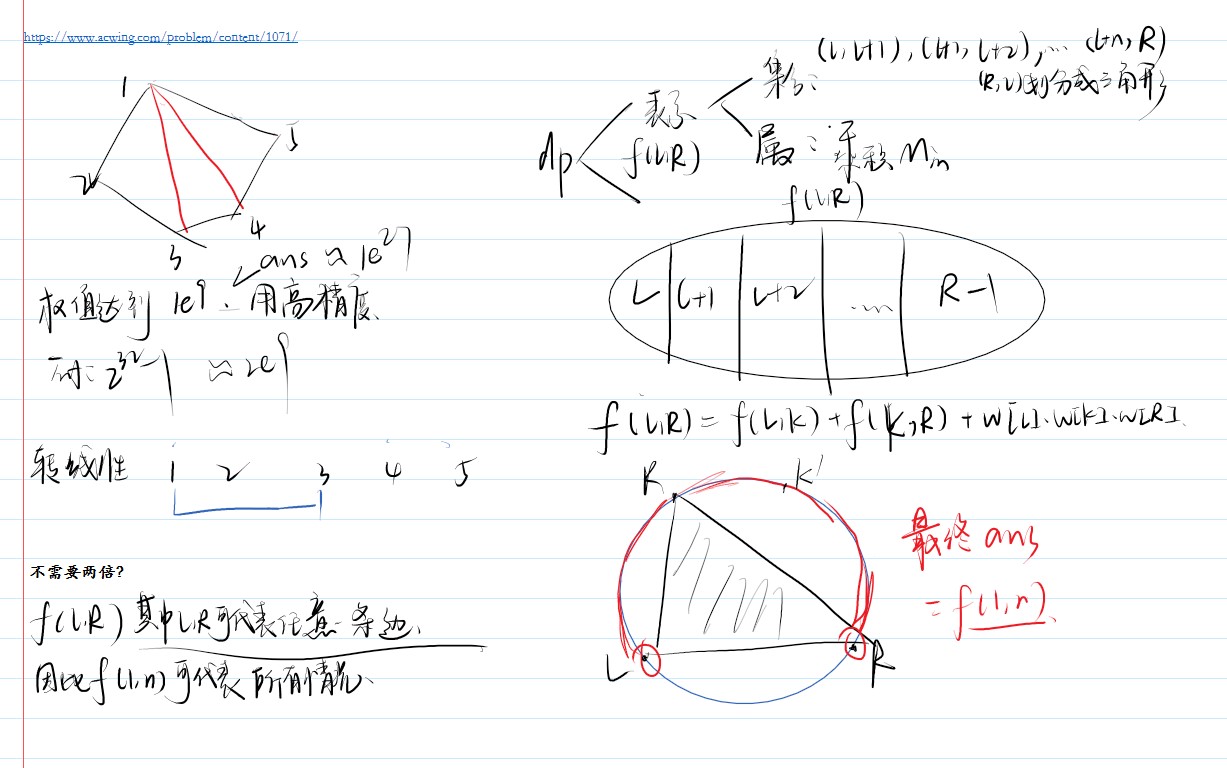 https://www.acwing.com/problem/content/1071/
1
2
3
4
5
ans ≈ 1e27
权值达到 1e9 ∴ 用高精度.
2^32-1 ≈ 2e9
转线性 1 2 3 4 5
不需要两倍?
f(L,R) 其中L,R可代表任意一条边.
因此f(1,n)可代表所有情况.
dp
表示
f(L,R)
集合:
(L,L+1), (L+1,L+2), ... (L+n,R)
(R,L)划分成三角形
属性: 乘积 Min
f(L,R)
L L+1 L+2 ... R-1
f(L,R) = f(L,K) + f(K,R) + w[L]·w[K]·w[R].
K K'
L R
最终 ans
= f(1,n).